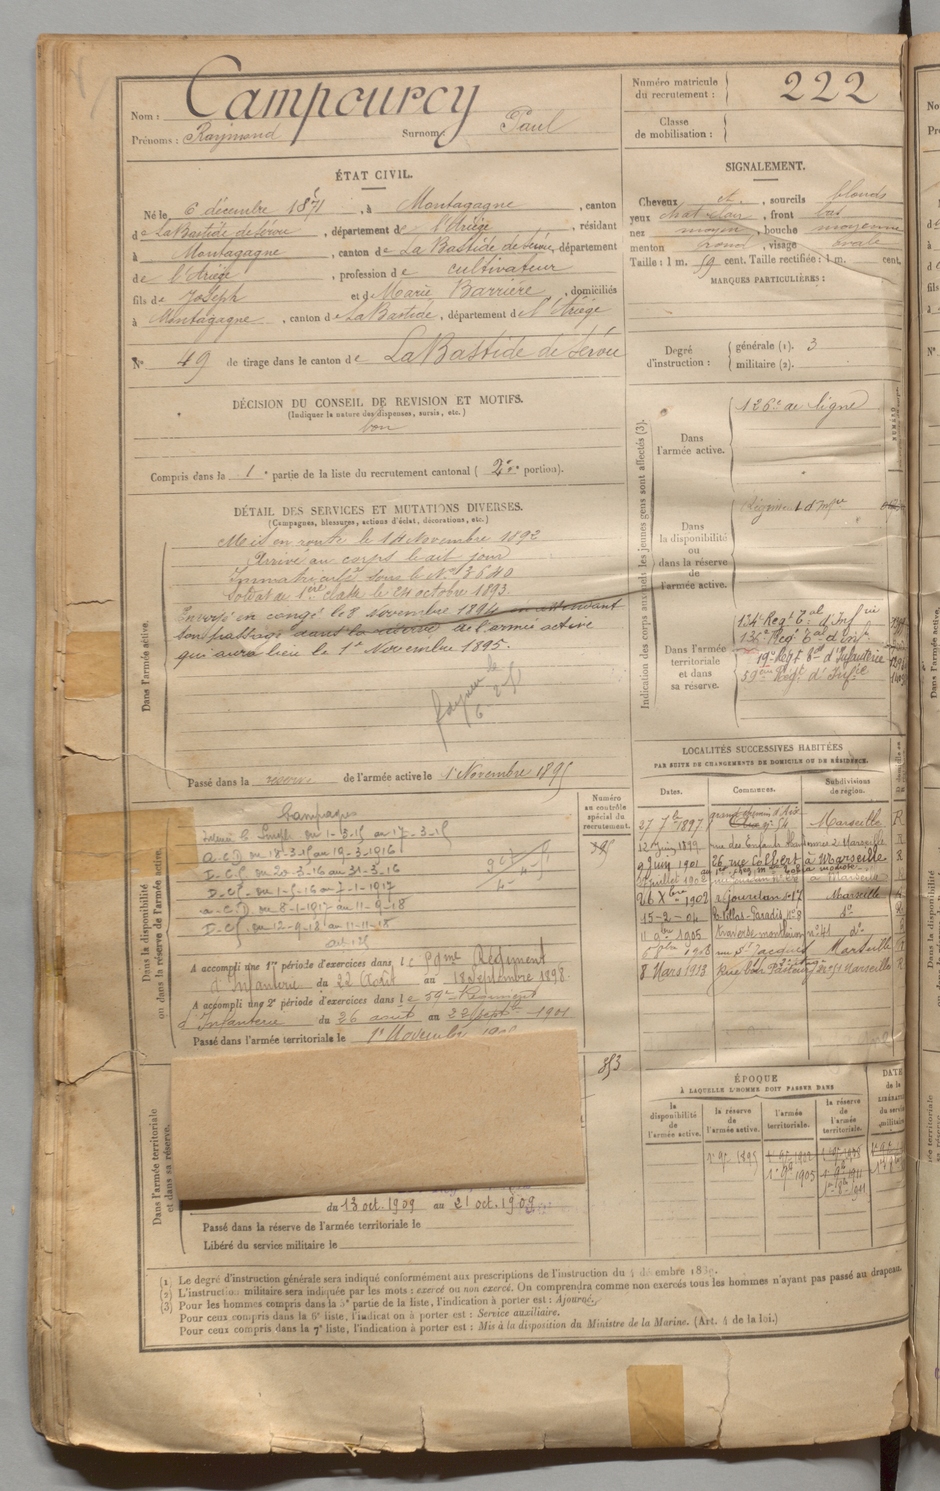 Nom : Campourcy
Prénoms : Raymond Surnom : Paul
Numéro matricule du recrutement : 222
Classe de mobilisation :
ÉTAT CIVIL.
Né le 6 décembre 1871, à Montagagne, canton
de LaBastide de Sérou, département de l'Ariège, résidant
à Montagagne, canton de La Bastide de Sérou, département
de l'Ariège, profession de cultivateur
fils de Joseph et de Marie Barrière, domiciliés
à Montagagne, canton de LaBastide, département de l'Ariège
N° 49 de tirage dans le canton de LaBastide de Sérou
SIGNALEMENT.
Cheveux et, sourcils blonds
yeux chat. clair, front bas
nez moyen, bouche moyenne
menton rond, visage ovale
Taille : 1 m. 59 cent. Taille rectifiée : 1 m. cent.
MARQUES PARTICULIÈRES :
Degré d'instruction : générale (1). 3
militaire (2).
DÉCISION DU CONSEIL DE REVISION ET MOTIFS.
(Indiquer la nature des dispenses, sursis, etc.)
bon
Compris dans la 1e partie de la liste du recrutement cantonal ( 2e portion).
DÉTAIL DES SERVICES ET MUTATIONS DIVERSES.
(Campagnes, blessures, actions d'éclat, décorations, etc.)
Mis en route le 14 Novembre 1892
Arrivé au corps le dit jour
Immatriculé sous le N° 3640
Soldat de 1ère classe le 24 octobre 1893.
Envoyé en congé le 8 novembre 1894 en attendant
son passage dans la réserve de l'armée active
qui aura lieu le 1er Novembre 1895.
Passé dans la réserve de l'armée active le 1er Novembre 1895
Dans l'armée active.
Indication des corps auxquels les jeunes gens sont affectés (3).
Dans l'armée active.
126e de ligne
Dans la disponibilité ou dans la réserve de l'armée active.
Dans l'armée territoriale et dans sa réserve.
134e Régt Tal d'Infrie
135e Régt Tal d'Infie
19e Régt Tal d'Infanterie
59ème Régt d'Infie
LOCALITÉS SUCCESSIVES HABITÉES
PAR SUITE DE CHANGEMENTS DE DOMICILE OU DE RÉSIDENCE.
Dates. Communes. Subdivisions de région.
27 7bre 1897 grand chemin d'Aix n° 54 Marseille R
2 Juin 1901 26 rue Colbert à Marseille R
26 Xbre 1902 n° 17 Marseille
15-2-04 Paradis n° 8 do
11 1905 n° 41 do
1908 Marseille
8 Mars 1913 Rue Pasteur Marseille R
Dans la disponibilité ou dans la réserve de l'armée active.
Numéro au contrôle spécial du recrutement.
Campagnes
Intérieur du 1-3-15 au 17-3-15
A.C.D. du 18-3-15 au 19-3-1916
D.C.F. du 20-3-16 au 31-3-16
D.C.F. du 1-5-16 au 7-1-1917
A.C.D. du 8-1-1917 au 11-9-18
D.C.F. du 12-9-18 au 11-11-18
A accompli une 1re période d'exercices dans le 59me Régiment
d'Infanterie du 22 Août au 18 Septembre 1898.
A accompli une 2e période d'exercices dans le 59e Régiment
d'Infanterie du 26 août au 22 Septbre 1901
Passé dans l'armée territoriale le 1er Novembre
853
Dans l'armée territoriale et dans sa réserve.
du 13 oct. 1909 au 21 oct. 1909
Passé dans la réserve de l'armée territoriale le
Libéré du service militaire le
ÉPOQUE
À LAQUELLE L'HOMME DOIT PASSER DANS
la disponibilité de l'armée active.
la réserve de l'armée active.
l'armée territoriale.
la réserve de l'armée territoriale.
DATE de la
1er 9bre 1895 1er 9bre 1902 1er 9bre 1908
1er 9bre 1905 1er 9bre 1911
1er 8bre 1911
(1) Le degré d'instruction générale sera indiqué conformément aux prescriptions de l'instruction du 4 décembre 1889.
(2) L'instruction militaire sera indiquée par les mots : exercé ou non exercé. On comprendra comme non exercés tous les hommes n'ayant pas passé au drapeau.
(3) Pour les hommes compris dans la 5e partie de la liste, l'indication à porter est : Ajourné.
Pour ceux compris dans la 6e liste, l'indication à porter est : Service auxiliaire.
Pour ceux compris dans la 7e liste, l'indication à porter est : Mis à la disposition du Ministre de la Marine. (Art. 4 de la loi.)